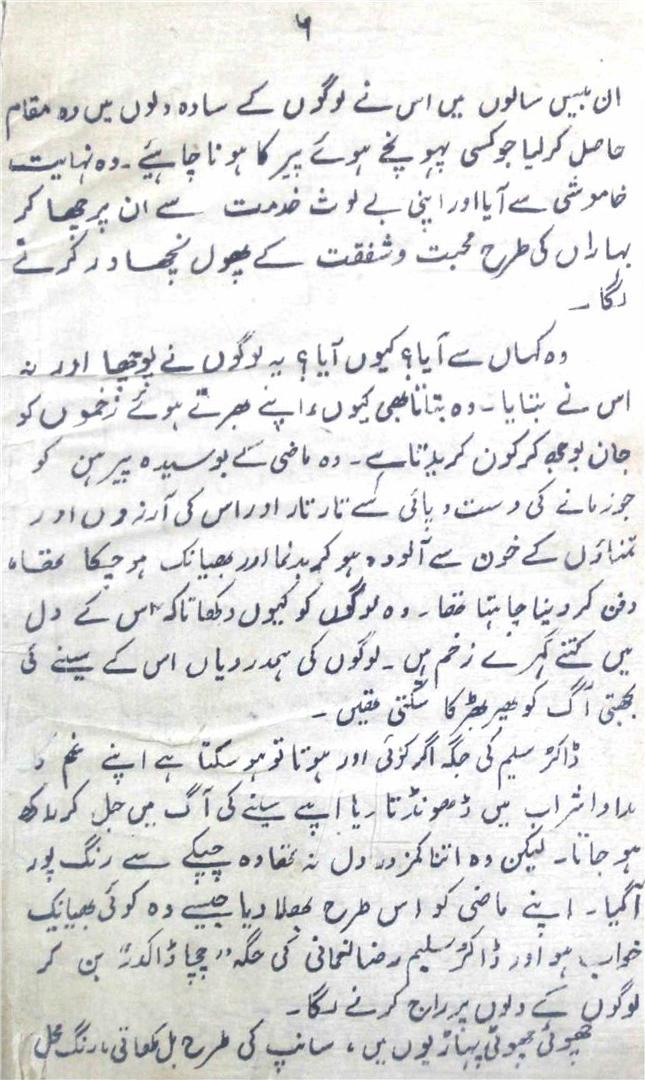 ۶
ان بیس سالوں میں اس نے لوگوں کے سادہ دلوں میں وہ مقام
حاصل کر لیا جو کسی پہونچے ہوئے پیر کا ہونا چاہیئے ۔ وہ نہایت
خاموشی سے آیا اور اپنی بے لوث خدمت سے ان پر چھا کر
بہاراں کی طرح محبت و شفقت کے پھول نچھاور کرنے
لگا ۔
وہ کہاں سے آیا؟ کیوں آیا؟ یہ لوگوں نے پوچھا اور نہ
اس نے بتایا ۔ وہ بتاتا بھی کیوں، اپنے بھرتے ہوئے زخموں کو
جان بوجھ کر کون کریدتا ہے ۔ وہ ماضی کے بوسیدہ پیرہن کو
جو زمانے کی دست و پائی سے تار تار اور اس کی آرزوں اور
تمناؤں کے خون سے آلودہ ہو کر بدنما اور بھیانک ہو چکا تھا،
دفن کر دینا چاہتا تھا ۔ وہ لوگوں کو کیوں دکھاتا کہ اس کے دل
میں کتنے گہرے زخم ہیں ۔ لوگوں کی ہمدردیاں اس کے سینے کی
بجھتی آگ کو پھر بھڑکا سکتی تھیں ۔
ڈاکٹر سلیم کی جگہ اگر کوئی اور ہوتا تو ہو سکتا ہے اپنے غم کا
مداوا شراب میں ڈھونڈتا ریا اپنے سینے کی آگ میں جل کر راکھ
ہو جاتا ۔ لیکن وہ اتنا کمزور دل نہ تھا وہ چپکے سے رنگ پور
آگیا ۔ اپنے ماضی کو اس طرح بھلا دیا جیسے وہ کوئی بھیانک
خواب ہو اور ڈاکٹر سلیم رضا نعمانی کی جگہ "چچا ڈاکدر" بن کر
لوگوں کے دلوں پر راج کرنے لگا ۔
چھوٹی چھوٹی پہاڑیوں میں، سانپ کی طرح بل کھاتی، رنگ محل